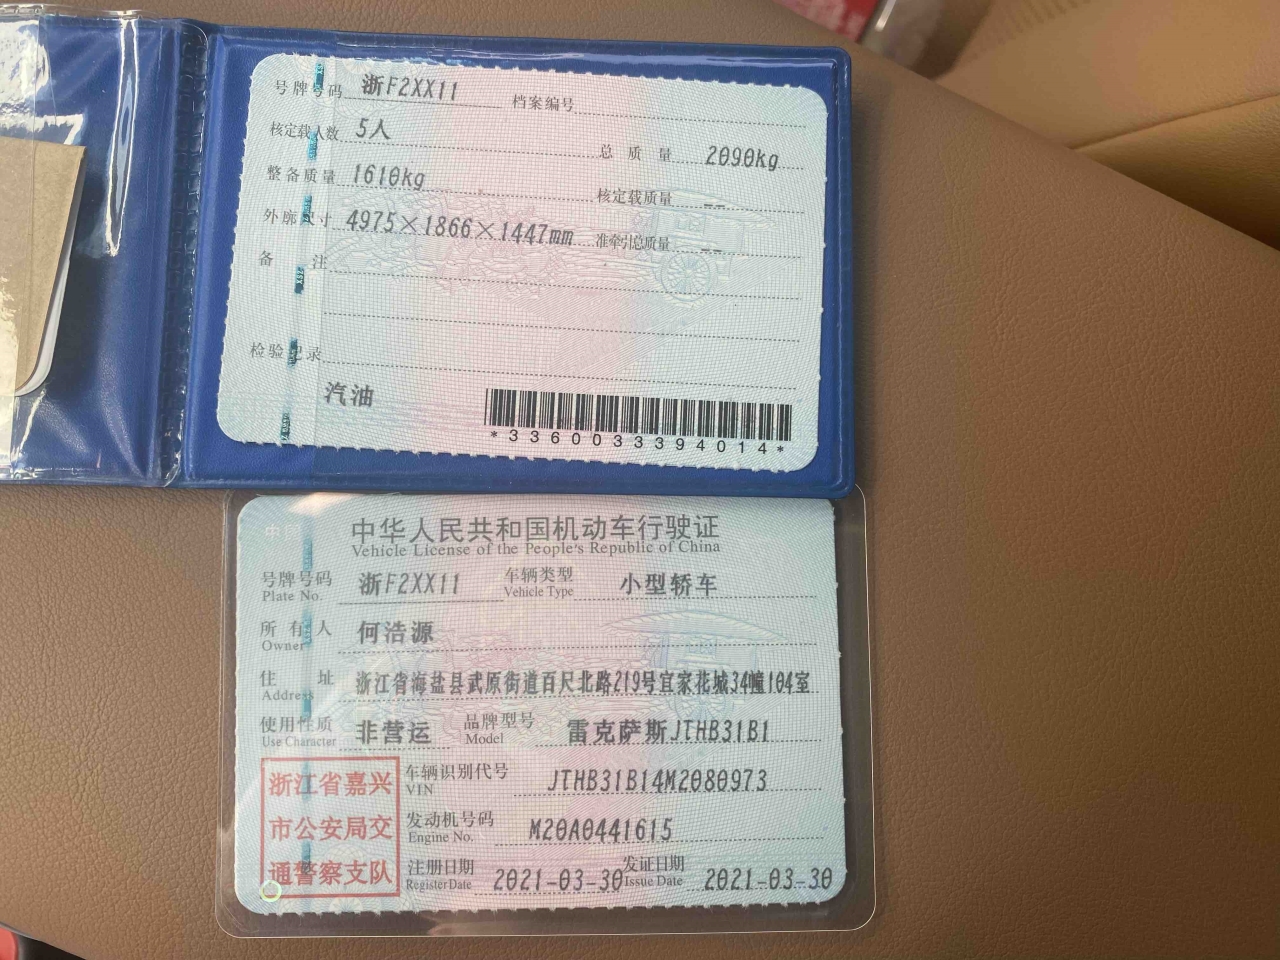 号牌号码 浙F2XX11 档案编号
核定载人数 5人 总质量 2090kg
整备质量 1610kg 核定载质量 --
外廓尺寸 4975×1866×1447mm 准牵引总质量 --
备注
检验记录
汽油
*3360033394014*
中华人民共和国机动车行驶证
Vehicle License of the People's Republic of China
号牌号码 浙F2XX11 车辆类型 小型轿车
Plate No. Vehicle Type
所有人 何浩源
Owner
住址 浙江省海盐县武原街道百尺北路219号宜家花城34幢104室
Address
使用性质 非营运 品牌型号 雷克萨斯JTHB31B1
Use Character Model
浙江省嘉兴
市公安局交
通警察支队
车辆识别代号 JTHB31B14M2080973
VIN
发动机号码 M20A0441615
Engine No.
注册日期 2021-03-30 发证日期 2021-03-30
Register Date Issue Date